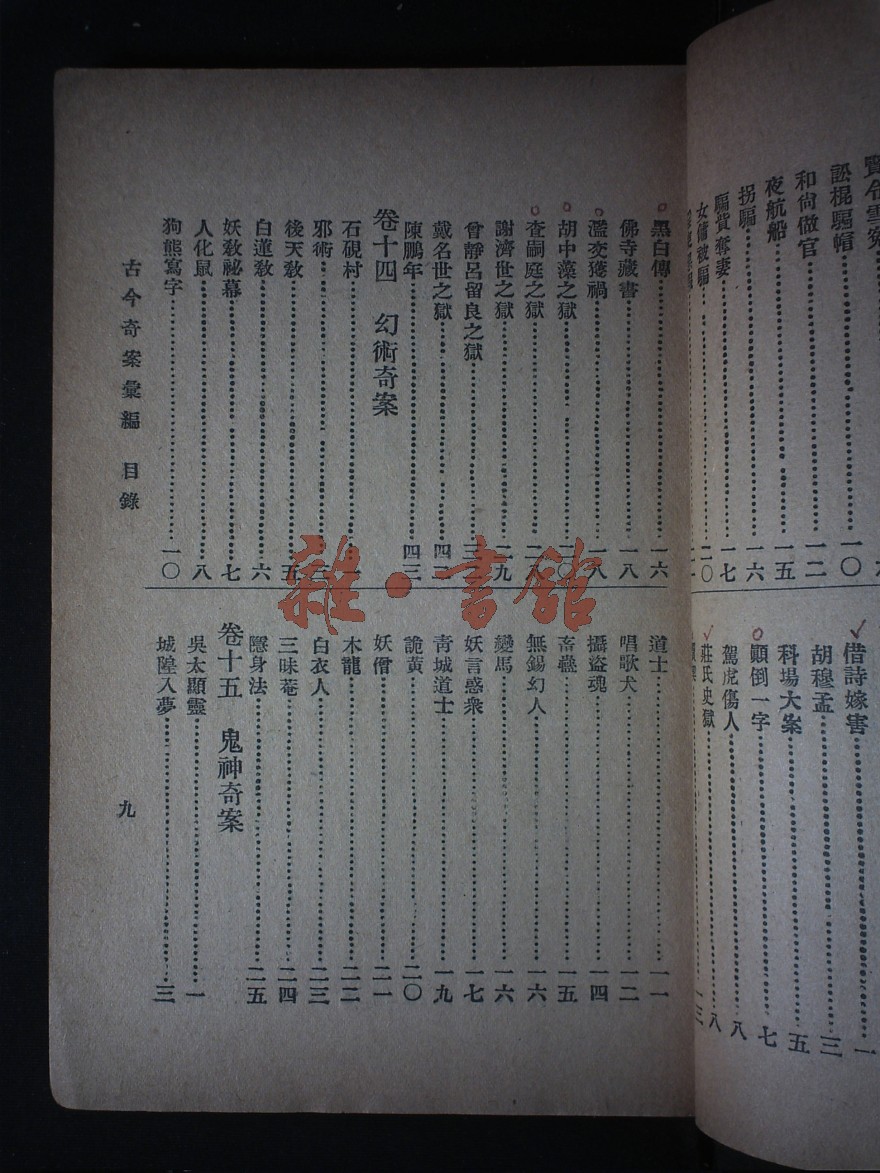 和尚做官 一二
夜航船 一五
拐騙 一六
騙貨奪妻 一七
女傭被騙 二〇
訟棍騙帽 一〇
借詩嫁害 一
胡穆孟 三
科場大案 五
顚倒一字 七
駕虎傷人 八
莊氏史獄 八
黑白傳 一六
佛寺藏書 一八
濫交獲禍 一八
胡中藻之獄 二〇
查嗣庭之獄 二八
謝濟世之獄 二九
曾靜呂留良之獄
戴名世之獄 四二
陳鵬年 四三
卷十四 幻術奇案
石硯村 一
邪術
後天敎 五
白蓮敎 六
妖敎祕幕 七
人化鼠 八
狗熊寫字 一〇
道士 一一
唱歌犬 一二
攝盜魂 一四
畜蠱 一五
無錫幻人 一六
變馬 一六
妖言惑衆 一七
靑城道士 一九
詭黄 二〇
妖僧 二一
木龍 二二
白衣人 二三
三昧菴 二四
隱身法 二五
卷十五 鬼神奇案
吳太顯靈 一
城隍入夢 三
古今奇案彙編 目錄
九
雜·書館